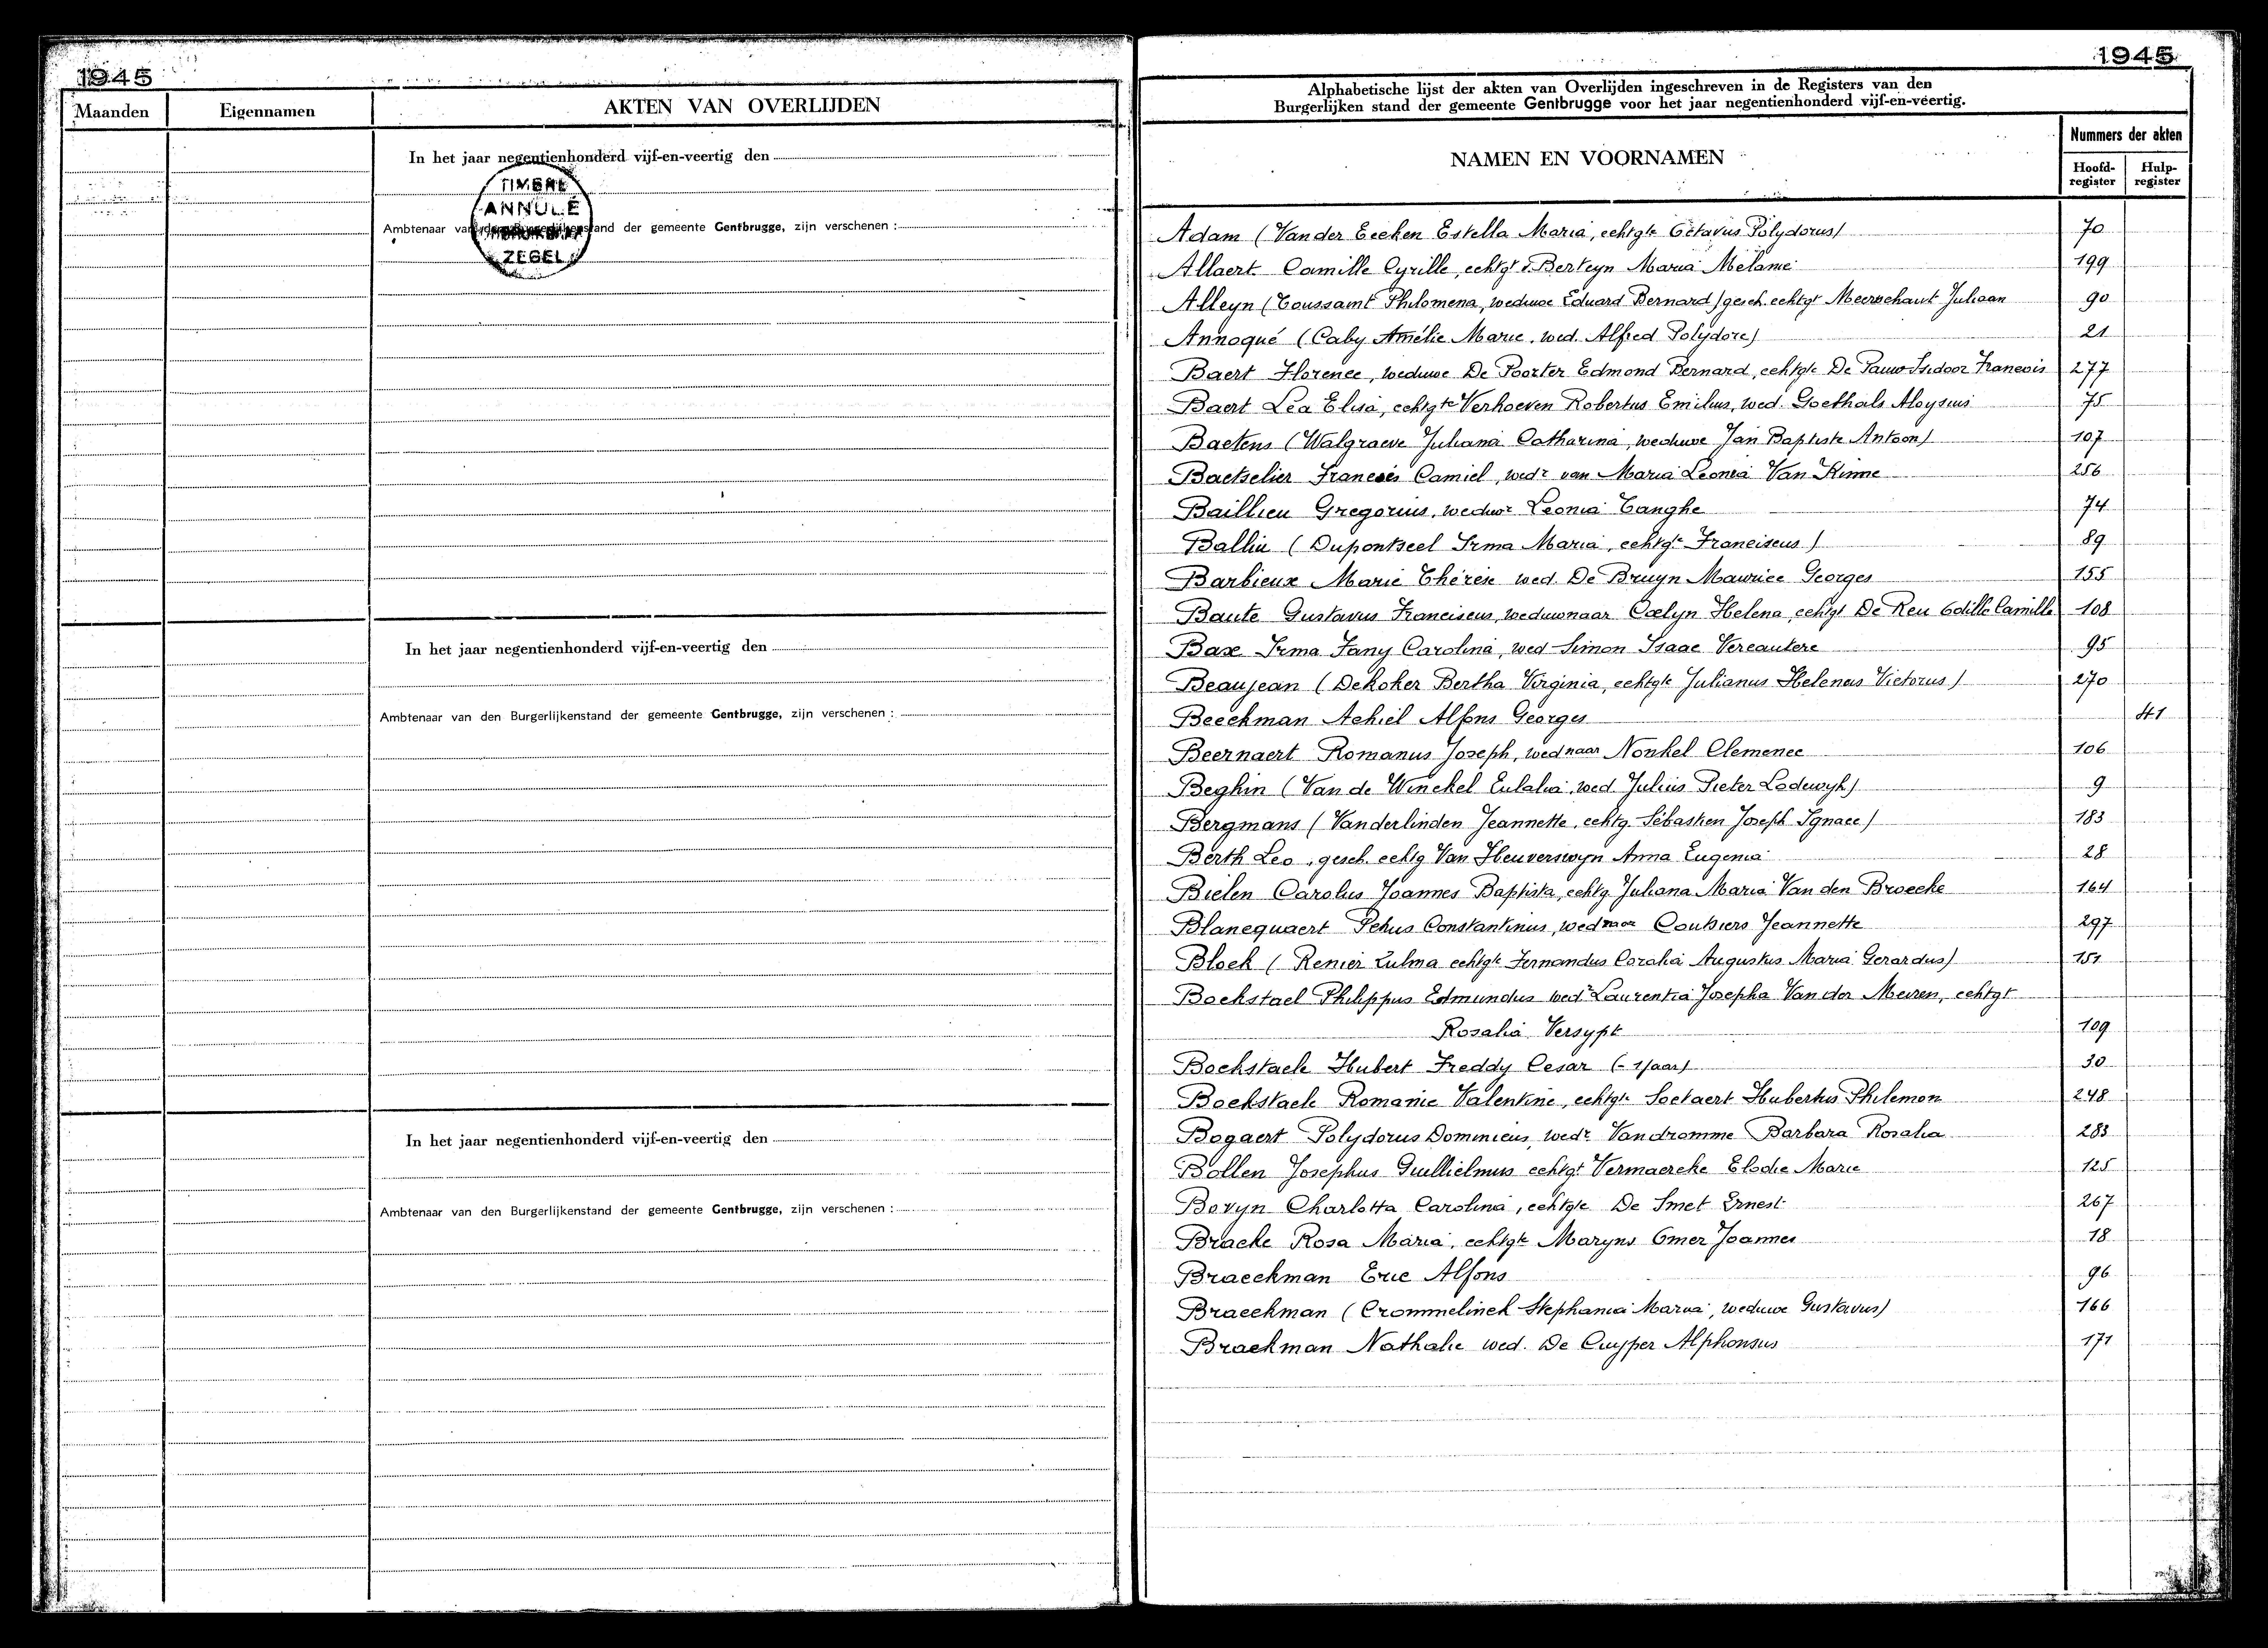 1945
Maanden
Eigennamen
AKTEN VAN OVERLIJDEN
In het jaar negentienhonderd vijf-en-veertig den
TIMBRE
ANNULÉ
ZEGEL
Ambtenaar van den Burgerlijkenstand der gemeente Gentbrugge, zijn verschenen :
In het jaar negentienhonderd vijf-en-veertig den
Ambtenaar van den Burgerlijkenstand der gemeente Gentbrugge, zijn verschenen :
In het jaar negentienhonderd vijf-en-veertig den
Ambtenaar van den Burgerlijkenstand der gemeente Gentbrugge, zijn verschenen :
1945
Alphabetische lijst der akten van Overlijden ingeschreven in de Registers van den
Burgerlijken stand der gemeente Gentbrugge voor het jaar negentienhonderd vijf-en-veertig.
NAMEN EN VOORNAMEN
Nummers der akten
Hoofd-register
Hulp-register
Adam (Van der Eecken Estella Maria, echtgte Octavus Polydorus) 70
Allaert Camille Cyrille, echtgt v. Berteyn Maria Mélanie 199
Alleyn (Toussaint Philomena, weduwe Eduard Bernard) gesch. echtgt Meerschaut Juliaan 90
Annoqué (Caby Amélie Marie, wed. Alfred Polydore) 21
Baert Florence, weduwe De Poorter Edmond Bernard, echtgte De Pauw Isidoor Francois 277
Baert Lea Elisa, echtgte Verhoeven Robertus Emilius, wed. Goethals Aloysius 75
Baetens (Walgraeve Juliana Catharina, weduwe Jan Baptiste Antoon) 107
Baetselier Francois Camiel, wedr van Maria Leonia Van Kinne 256
Baillieu Gregorius, weduwr Leonia Tanghe 74
Balliu (Dupontseel Irma Maria, echtgte Franciscus) 89
Barbieux Marie Thérèse wed. De Bruyn Maurice Georges 155
Baute Gustavus Franciscus, weduwnaar Coelyn Helena, echtgt De Reu Odille Camille 108
Baxe Irma Fany Carolina, wed Simon Isaac Vercautere 95
Beaujean (Dekoker Bertha Virginia, echtgte Julianus Helenas Victorus) 270
Beeckman Achiel Alfons Georges H1
Beernaert Romanus Joseph, wednaar Nonkel Clemence 106
Beghin (Van de Winckel Eulalia, wed. Julius Pieter Lodewyk) 9
Bergmans (Vanderlinden Jeannette, echtg. Sébastien Joseph Ignace) 183
Berth Leo, gesch. echtg Van Heuverswyn Anna Eugenia 28
Bielen Carolus Joannes Baptista, echtg. Juliana Maria Van den Broecke 164
Blancquaert Petrus Constantinus, wednaar Coutsiers Jeannette 297
Block (Renier Zulma echtgte Fernandus Coralia Augustus Maria Gerardus) 151
Bockstael Philippus Edmundus wedr Laurentia Josepha Van der Meiren, echtgt
Rosalia Versypt 109
Bockstaele Hubert Freddy Cesar (- 1 jaar) 30
Bockstaele Romanie Valentine, echtgte Soetaert Hubertus Philemon 248
Bogaert Polydorus Dominicus, wedr Vandromme Barbara Rosalia 283
Bollen Josephus Guillielmus echtgt Vermaercke Elodie Marie 125
Bovyn Charlotta Carolina, echtgte De Smet Ernest 267
Bracke Rosa Maria, echtgte Maryns Omer Joannes 18
Braeckman Eric Alfons 96
Braeckman (Crommelinck Stephania Maria, weduwe Gustavus) 166
Braekman Nathalie wed. De Cuyper Alphonsus 171